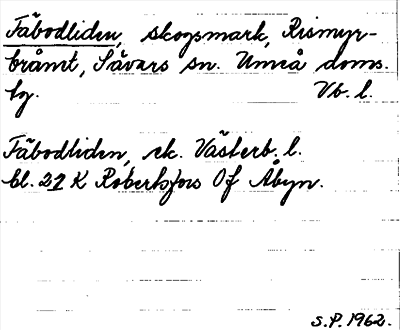 Fäbodliden, skogsmark, Rismyr-
bråmt, Sävars sn. Umeå doms.
by. Vb. l.
Fäbodliden, ek. Västerb. l.
bl. 21 K Robertsfors Of Åbyn.
S.P. 1962.